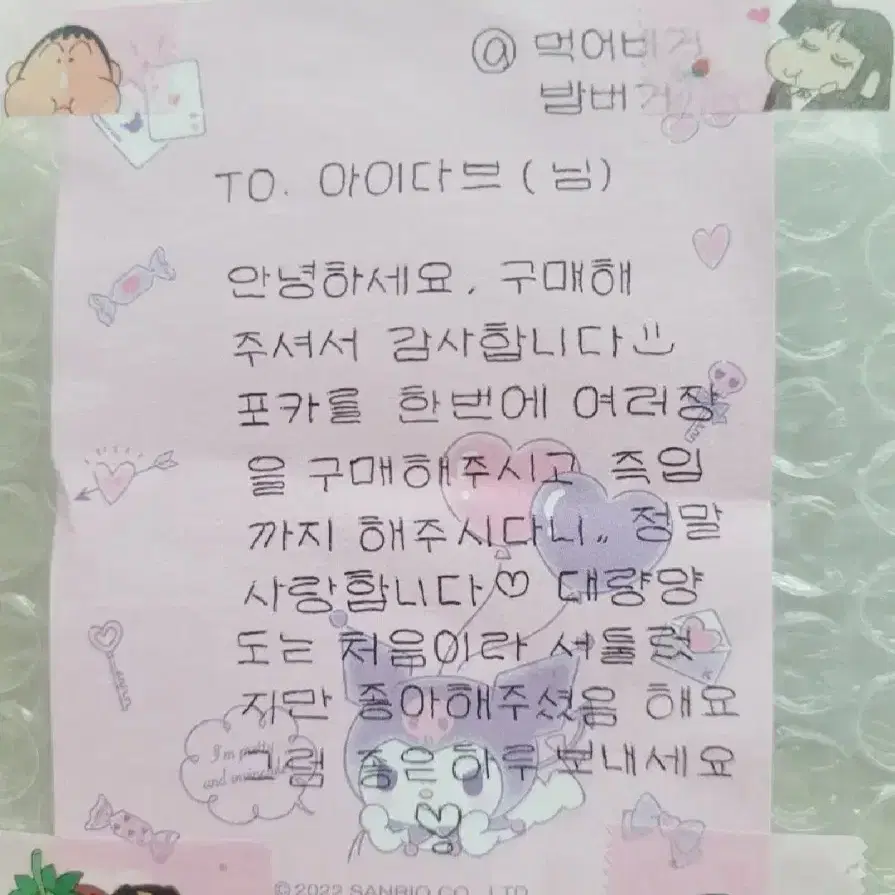 @ 먹어버거
밤버거
TO. 아이다브 (님)
안녕하세요. 구매해
주셔서 감사합니다
포카를 한번에 여러장
을 구매해주시고 즉입
까지 해주시다니.. 정말
사랑합니다♡ 대량양
도는 처음이라 서툴렀
지만 좋아해주셨음 해요
그럼 좋은하루보내세요
♡
I'm pretty
and
©2022 SANRIO CO., LTD.